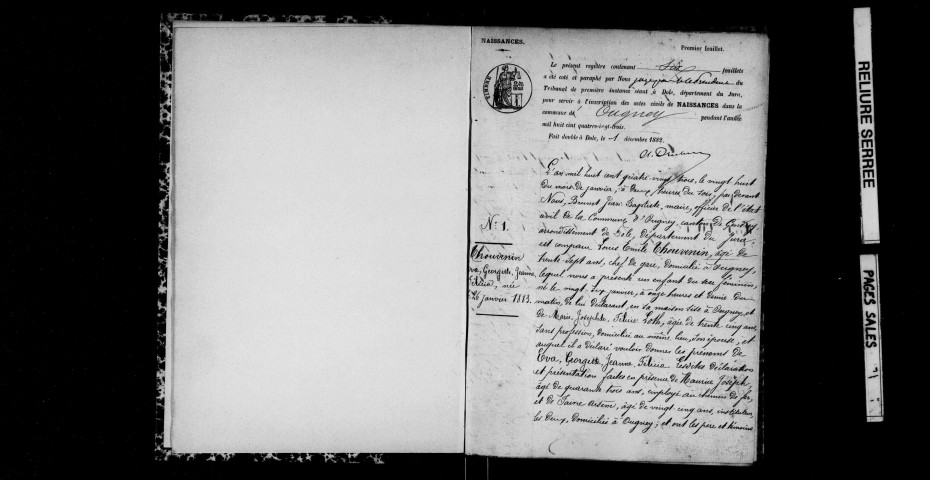 NAISSANCES.
Premier feuillet.
Le présent registre contenant Six feuillets
a été coté et paraphé par Nous du
Tribunal de première instance séant à Dole, département du Jura,
pour servir à l'inscription des actes civils de NAISSANCES dans la
commune d'Ougney pendant l'année
mil huit cent quatre-vingt-trois.
Fait double à Dole, le 1 décembre 1882.
TIMBRE
L'an mil huit cent quatre vingt trois, le vingt huit
du mois de janvier, à deux heures du soir, par devant
Nous, Brunet Jean Baptiste, maire, officier de l'état
civil de la Commune d'Ougney, canton de Gendrey,
arrondissement de Dole, département du Jura
est comparu Louis Emile Thouvenin, âgé de
trente sept ans, chef de gare, domicilié à Ougney,
lequel nous a présenté un enfant du sexe féminin,
né le vingt six janvier, à onze heures et demie du
matin, de lui déclarant, en sa maison sise à Ougney, et
de Marie Joséphile Félicie Lots, âgée de trente cinq ans,
sans profession, domiciliée au même lieu, son épouse, et
auquel il a déclaré vouloir donner les prénoms de
Eva, Georgette, Jeanne, Félicia. Lesdites déclaration
et présentation faites en présence de Maurice Joseph,
âgé de quarante trois ans, employé au chemin de fer,
et de Jaine Arsène, âgé de vingt cinq ans, instituteur,
les deux, domiciliés à Ougney; et ont les père et témoins
N° 1.
Thouvenin
Eva, Georgette, Jeanne,
Félicia, née
26 janvier 1883.
RELIURE SERREE
PAGES SALES